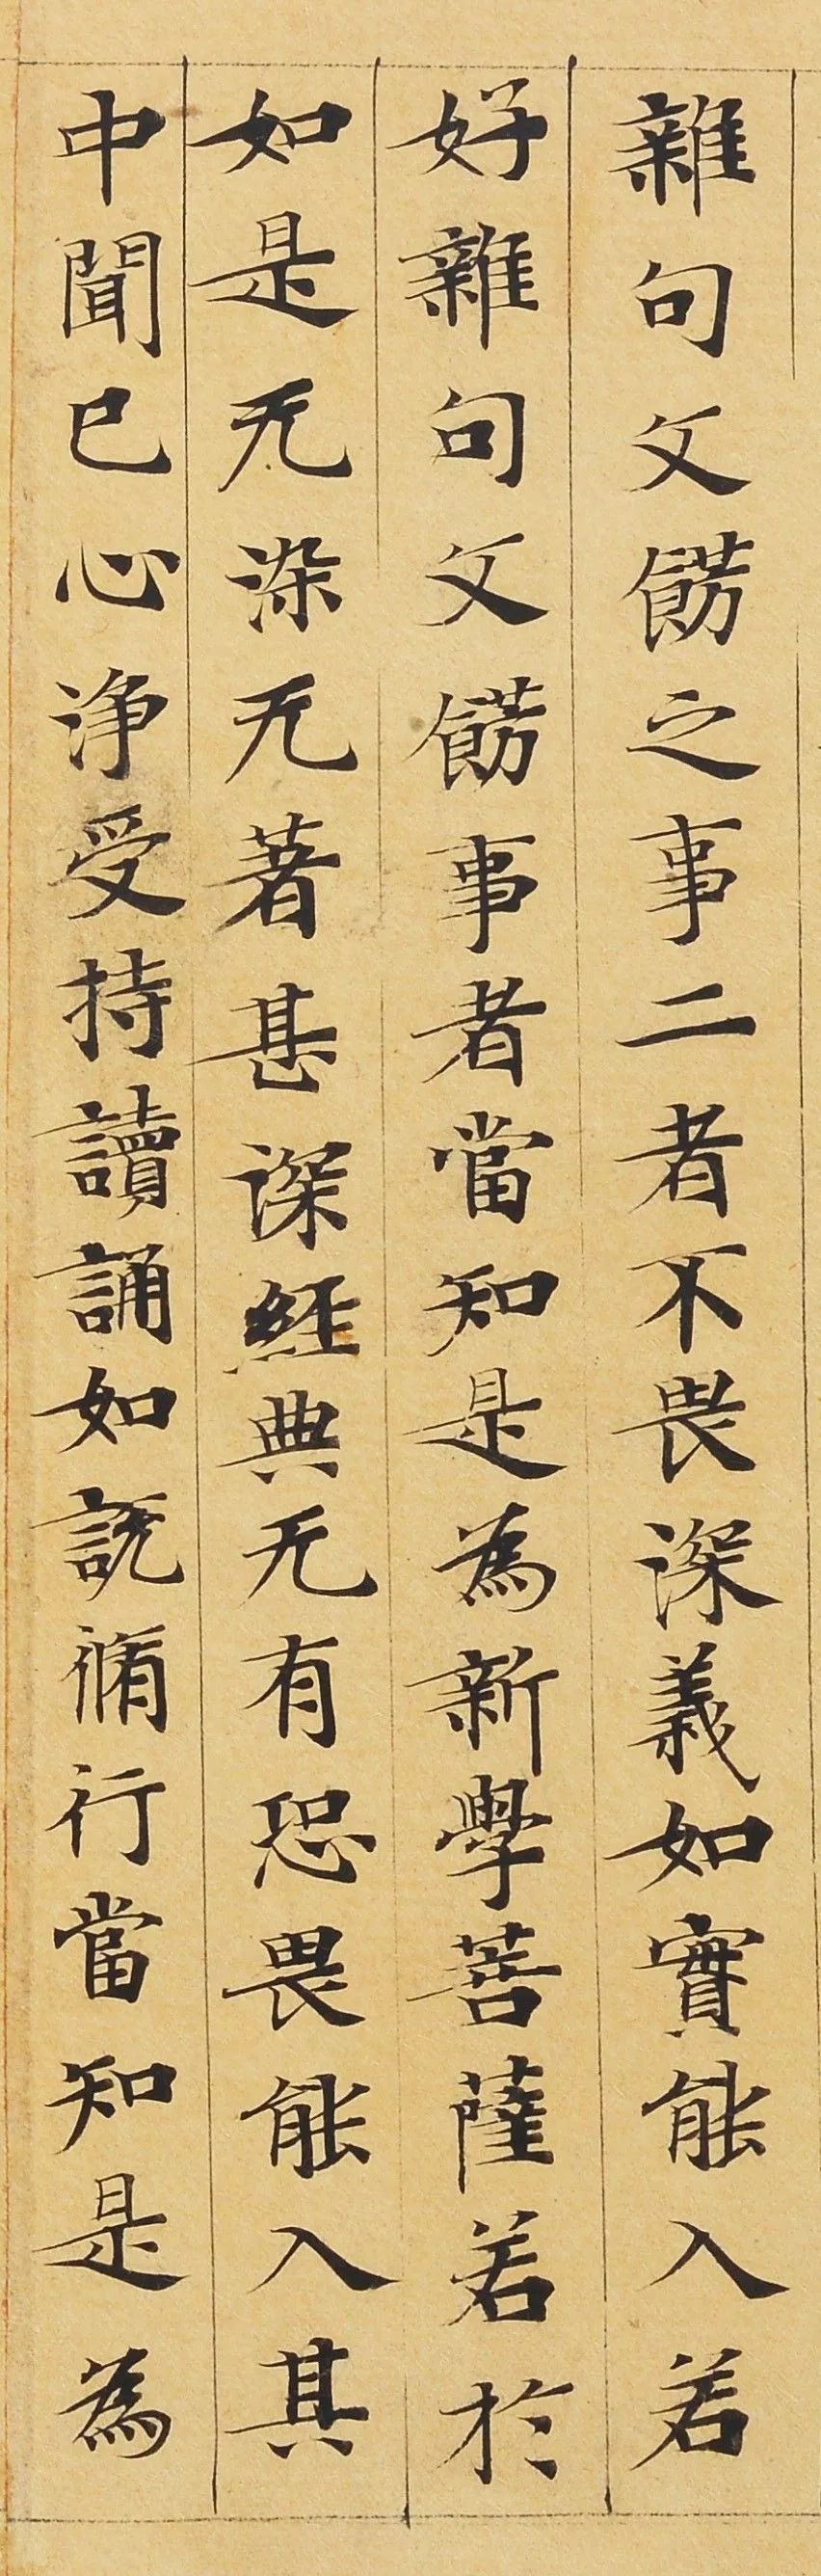 雜句文餝之事二者不畏深義如實能入若
好雜句文餝事者當知是為新學菩薩若於
如是无染无著甚深經典无有恐畏能入其
中聞已心淨受持讀誦如說脩行當知是為